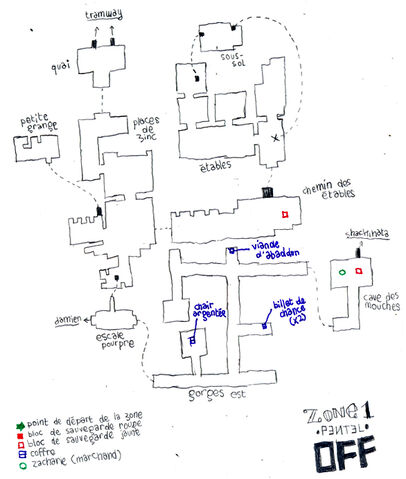 tramway
quai
petite
grange
places
de
zinc
sous-
sol
étables
chemin des
étables
viande
d'abaddon
shachihata
cave des
mouches
chair
argentée
billet de
chance
(x2)
damien
escale
pourpre
gorges est
point de départ de la zone
bloc de sauvegarde rouge
bloc de sauvegarde jaune
coffre
zacharie (marchand)
ZONE 1
•PENTEL•
OFF